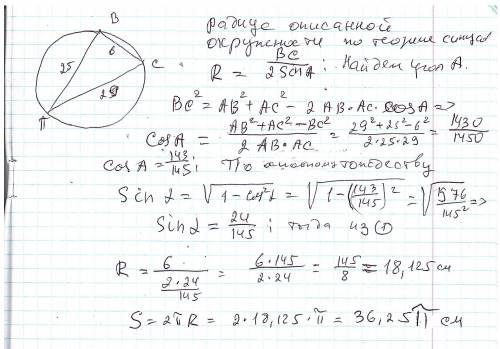 B
6
25
C
29
A
Радиус описанной
окружности по теореме синусов
R = BC / 2SinA ; Найдем угол A.
BC² = AB² + AC² - 2 AB·AC. cosA =>
CosA = AB² + AC² - BC² / 2 AB·AC = 29² + 25² - 6² / 2·25·29 = 1430 / 1450
cosA = 143 / 145; По основному тождеству
Sin α = √1 - cos²α = √1 - (143/145)² = √576 / 145² =>
Sin α = 24 / 145 ; тогда из ①
R = 6 / 2·24 / 145 = 6·145 / 2·24 = 145 / 8 = 18,125 см
S = 2πR = 2·18,125·π = 36,25π см